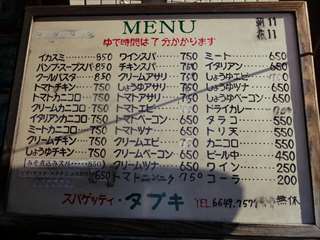 MENU
ゆで時間は7分かかります
朝11
夜11
イカスミ 850
バンブ・スープスパ 850
クールパスタ 850
トマトチキン 750
トマトカニコロ 750
クリームカニコロ 750
イタリアンカニコロ 750
ミートカニコロ 750
クリームチキン 750
しょうゆチキン 750
みそ煮込みスパ 850
650
ワインスパ 750
クリームアサリ 750
しょうゆアサリ 750
トマトアサリ 750
クリームエビ 700
トマトエビ 700
トマトベーコン 650
トマトツナ 650
クリームベーコン 650
クリームツナ 650
トマトニンニク 750
ミート 650
イタリアン 650
しょうゆエビ 700
しょうゆツナ 650
しょうゆベーコン 650
ドライカレー 650
タラコ 550
トリ天 550
カニコロ 550
ビール中 450
ワイン 250
コーラ 200
スパゲッティ・タブキ
TEL 6649-757 無休